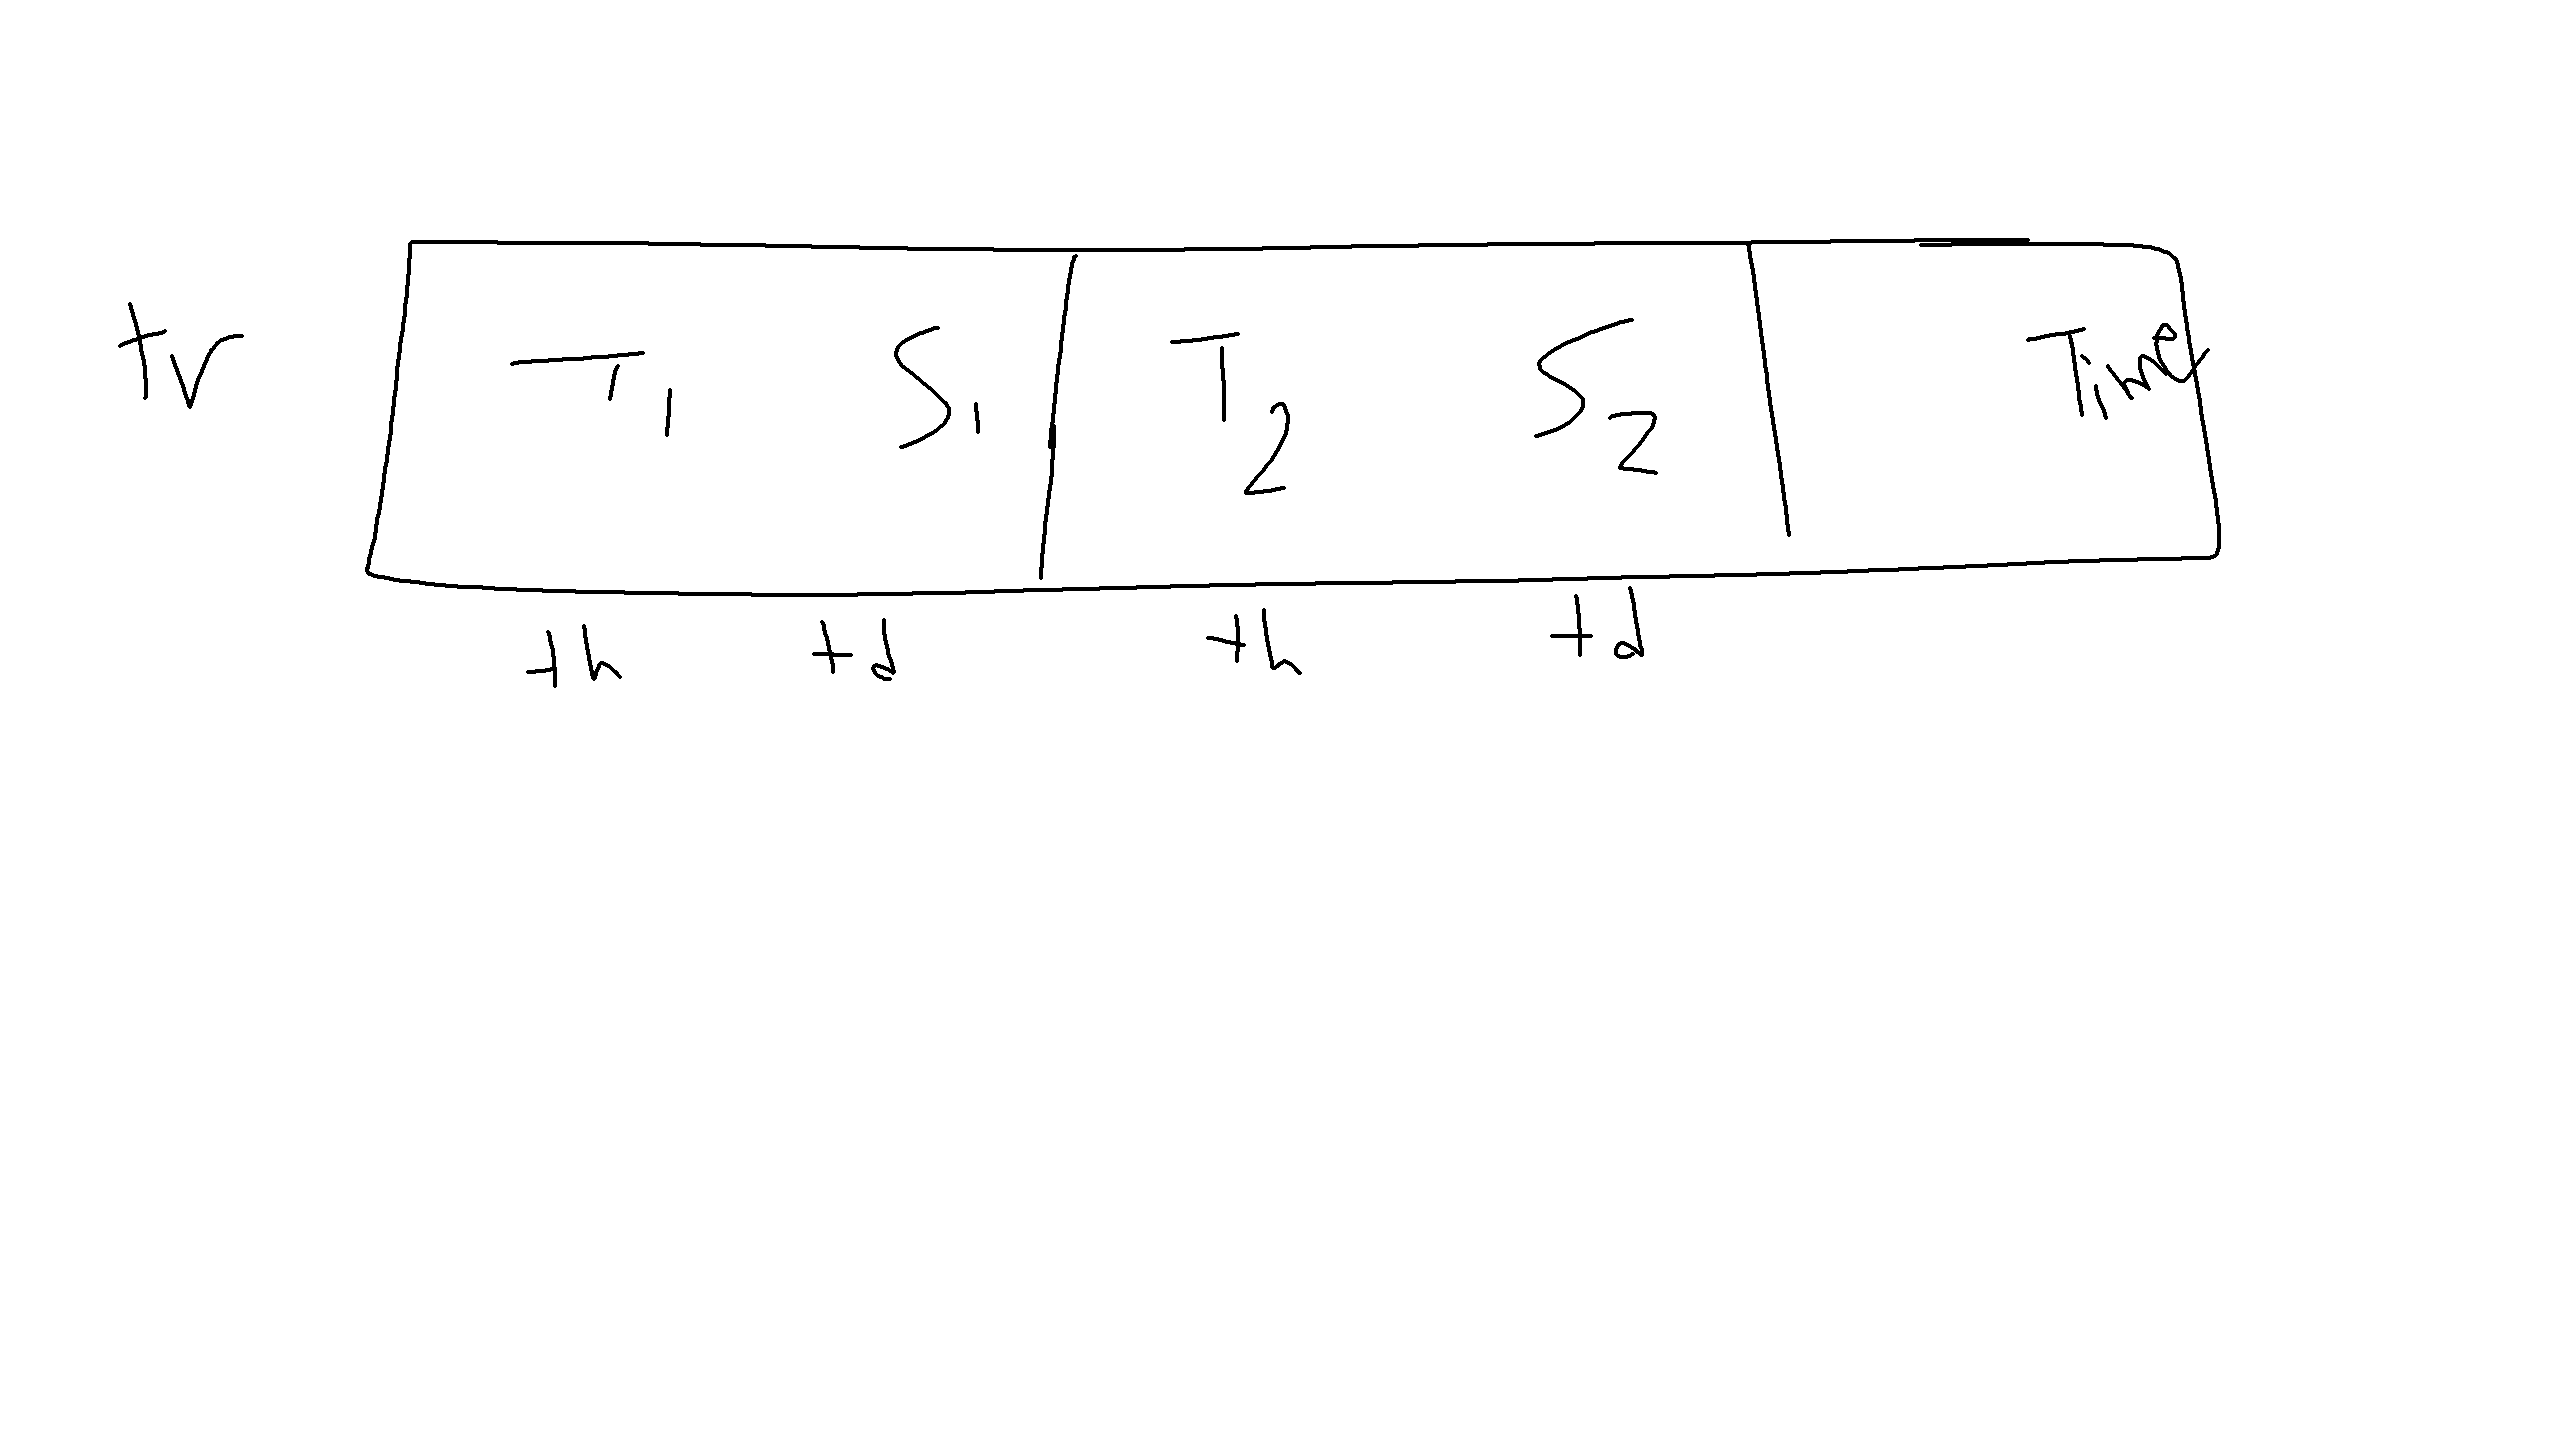 tv T1 S1 T2 S2 Time
th td th td